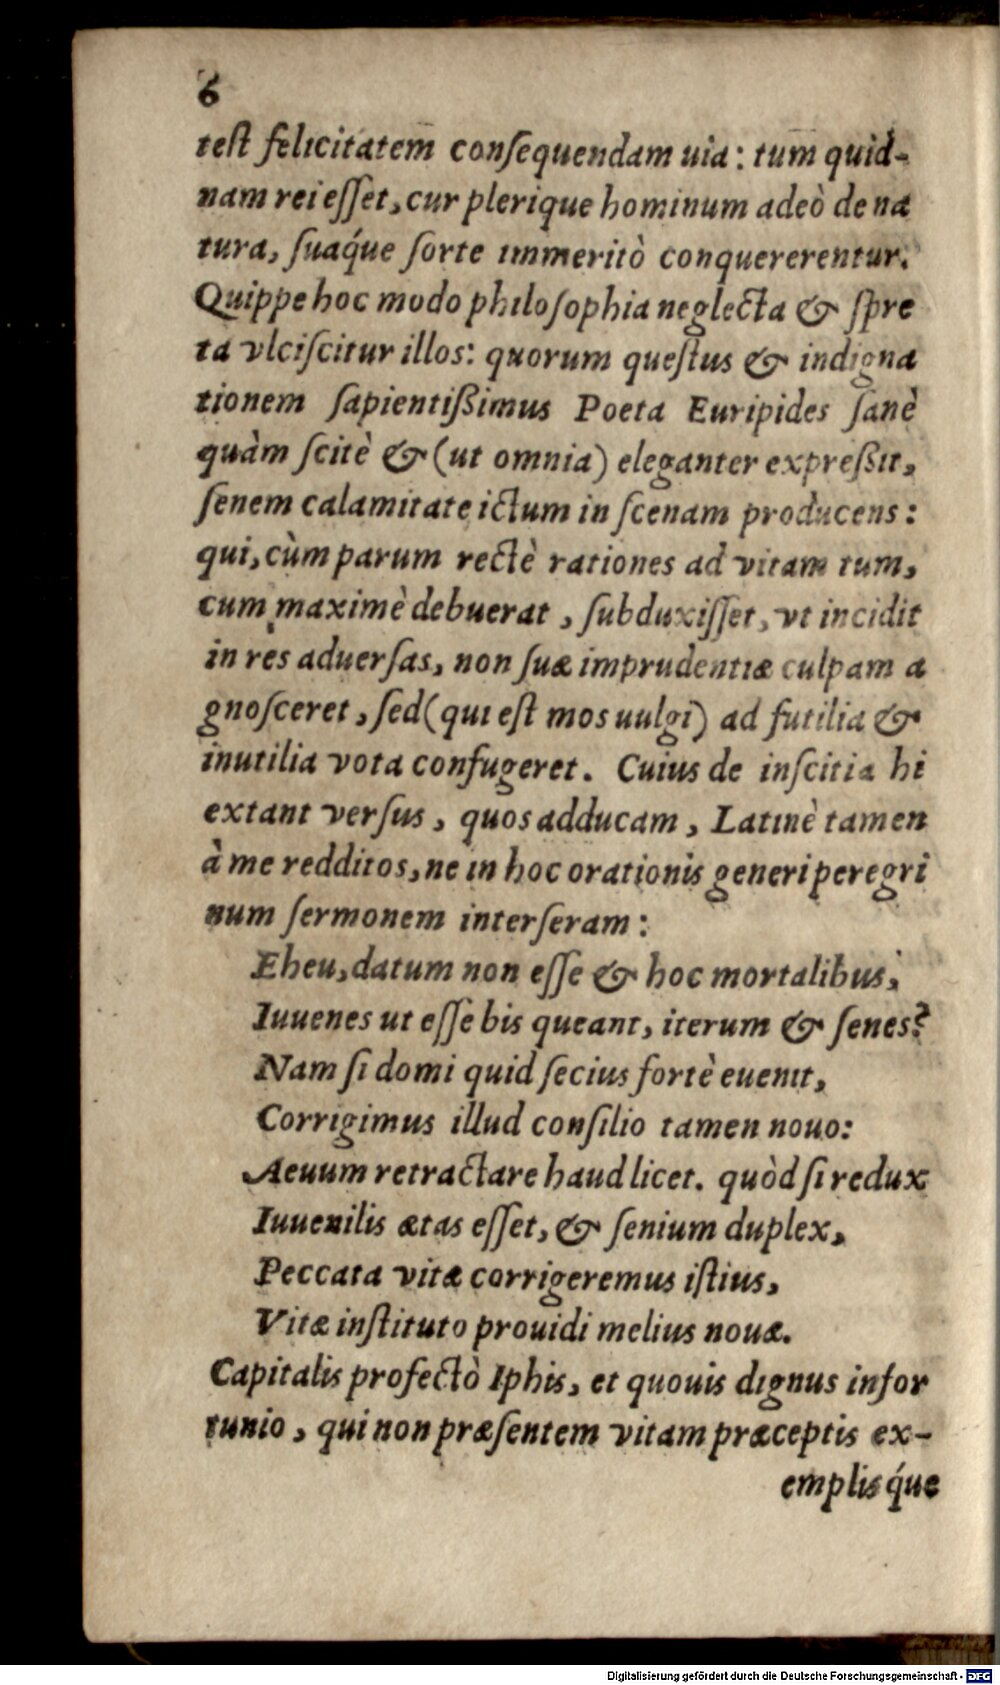 6
test felicitatem consequendam uia: tum quid-
nam rei esset, cur plerique hominum adeò de na
tura, suaq́ue sorte immeritò conquererentur.
Quippe hoc modo philosophia neglecta & spre
ta vlciscitur illos: quorum questus & indigna
tionem sapientißimus Poeta Euripides sanè
quàm scitè & (ut omnia) eleganter expreßit,
senem calamitate ictum in scenam producens:
qui, cùm parum rectè rationes ad vitam tum,
cum maximè debuerat, subduxisset, vt incidit
in res aduersas, non suæ imprudentiæ culpam a
gnosceret, sed (qui est mos uulgi) ad futilia &
inutilia vota confugeret. Cuius de inscitia hi
extant versus, quos adducam, Latinè tamen
à me redditos, ne in hoc orationis generi peregri
num sermonem interseram:
Eheu, datum non esse & hoc mortalibus,
Iuuenes ut esse bis queant, iterum & senes?
Nam si domi quid secius fortè euenit,
Corrigimus illud consilio tamen nouo:
Aeuum retractare haud licet. quòd si redux
Iuuenilis ætas esset, & senium duplex,
Peccata vitæ corrigeremus istius,
Vitæ instituto prouidi melius nouæ.
Capitalis profectò Iphis, et quouis dignus infor
tunio, qui non præsentem vitam præceptis ex-
emplisq́ue
Digitalisierung gefördert durch die Deutsche Forschungsgemeinschaft - DFG